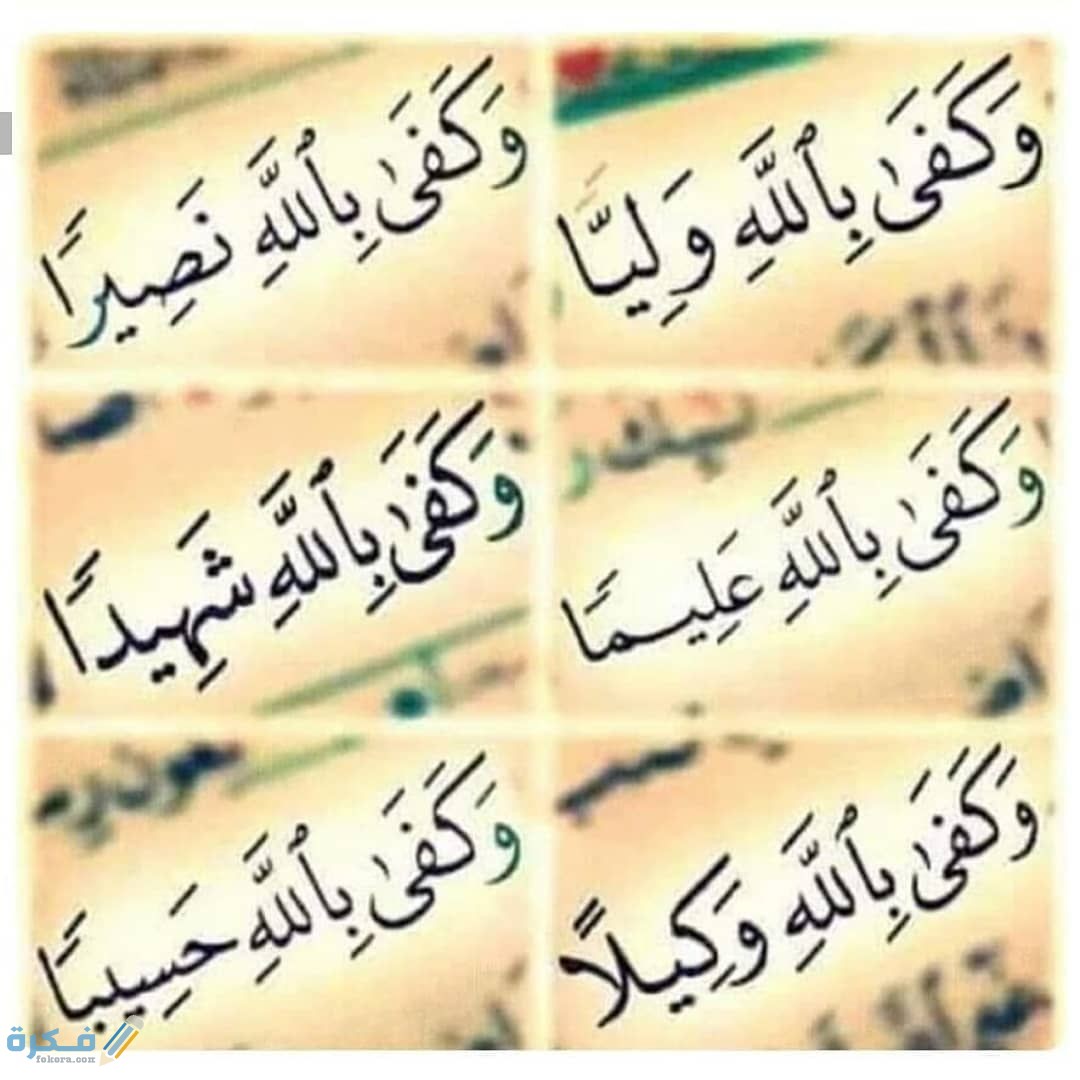 وَكَفَىٰ بِٱللَّهِ وَلِيًّا
وَكَفَىٰ بِٱللَّهِ نَصِيرًا
وَكَفَىٰ بِٱللَّهِ عَلِيمًا
وَكَفَىٰ بِٱللَّهِ شَهِيدًا
وَكَفَىٰ بِٱللَّهِ وَكِيلًا
وَكَفَىٰ بِٱللَّهِ حَسِيبًا
فكرة
fekera.com